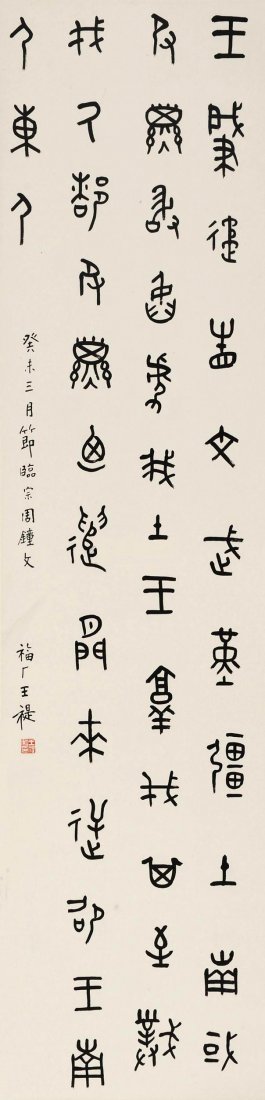 王肇遹省文武堇疆土南或
𠬝孳敢臽虐我土王敦伐其至撲
伐厥都𠬝孳迺遣閒來逆卲王南
尸東尸
癸未三月節臨宗周鐘文
福厂王禔